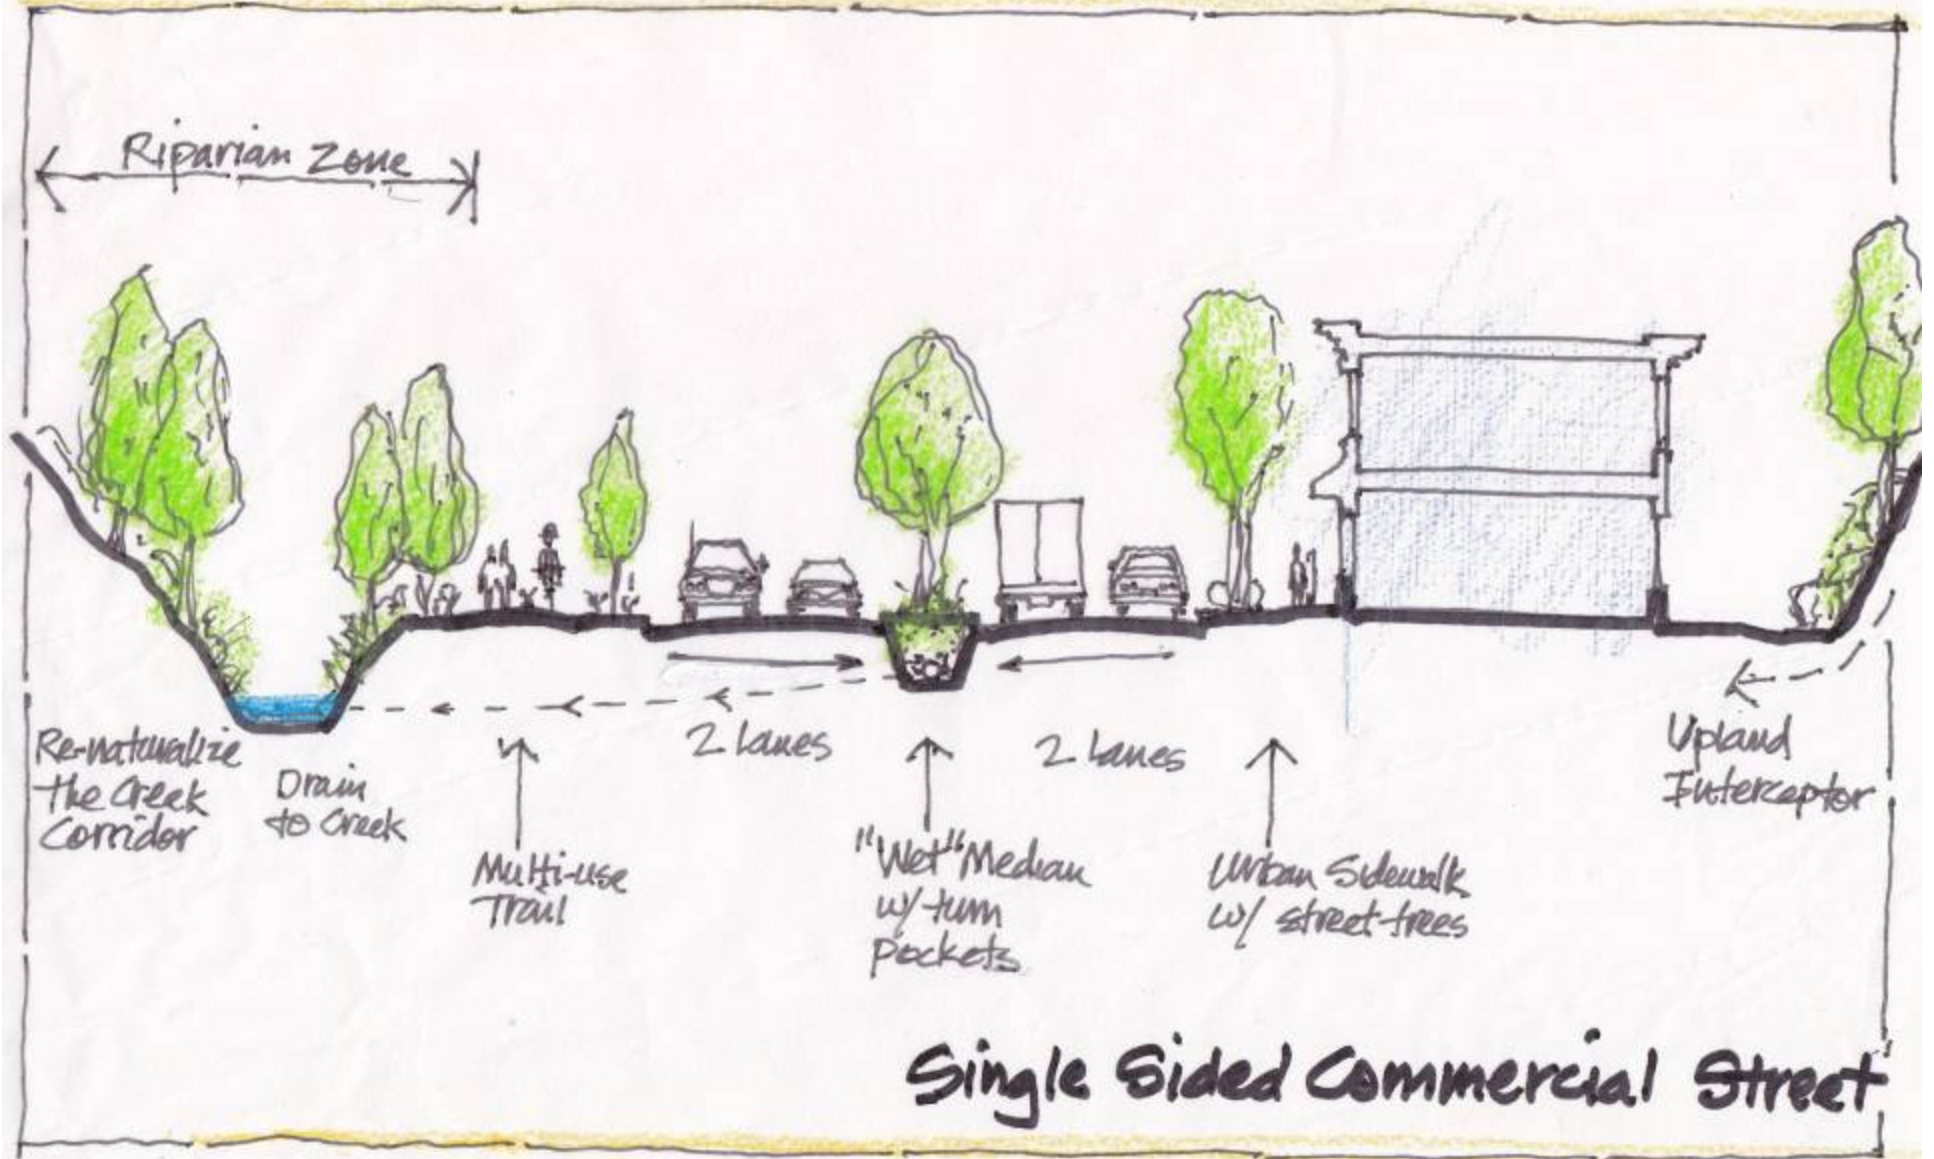 Riparian Zone
Re-naturalize
the Creek
Corridor
Drain
to Creek
Multi-use
Trail
2 lanes
"Wet" Median
w/ turn
pockets
2 lanes
Urban Sidewalk
w/ street trees
Upland
Interceptor
Single Sided Commercial Street